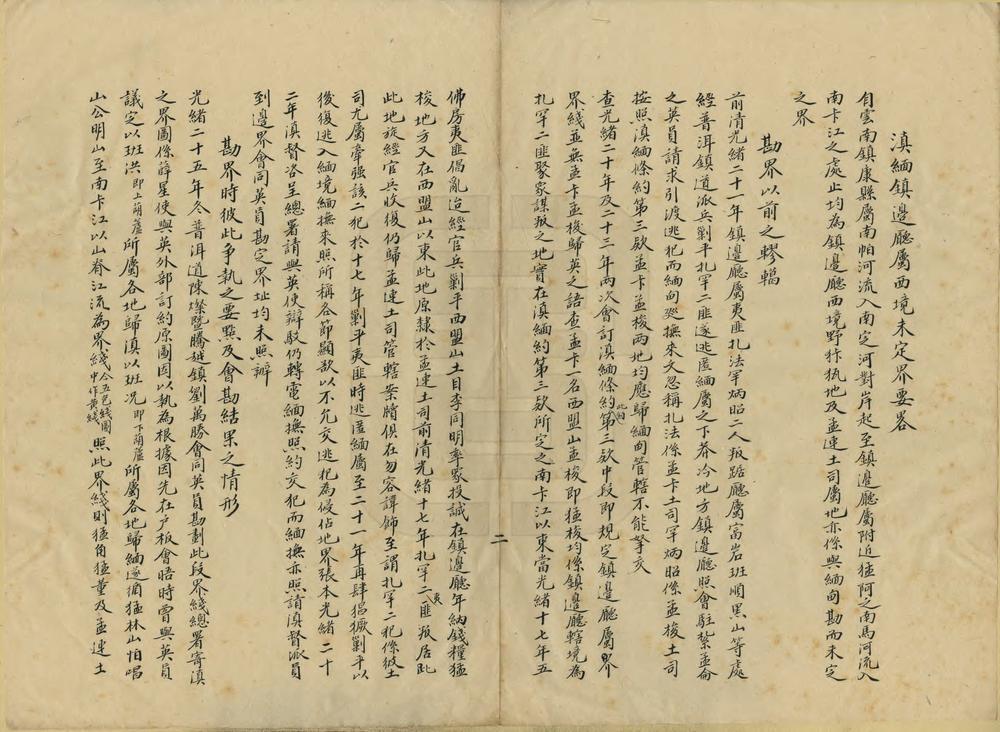 滇緬鎮邊廳屬西境未定界要畧
自雲南鎮康縣屬南帕河流入南定河對岸起至鎮邊廳屬附近猛阿之南馬河流入
南卡江之處止均為鎮邊廳西境野狇猔地及孟連土司屬地亦係與緬甸勘而未定
之界
勘界以前之轇轕
前清光緒二十一年鎮邊廳屬夷匪扎法罕炳昭二人叛踞廳屬富岩班順黑山等處
經普洱鎮道派兵剿平扎罕二匪遂逃匿緬屬之下莽冷地方鎮邊廳照會駐紮孟侖
之英員請求引渡逃犯而緬甸廵撫來文忽稱扎法係孟卡土司罕炳昭係孟梭土司
按照滇緬條約第三欵孟卡孟梭兩地均應歸緬甸管轄不能拏交
查光緒二十年及二十三年兩次會訂滇緬條約第三欵中段即規定鎮邊廳屬界
界綫並無孟卡孟梭歸英之語查孟卡一名西盟山孟梭即猛梭均係鎮邊廳轄境為
扎罕二匪聚家謀叛之地實在滇緬約第三欵所定之南卡江以東當光緒十七年五
佛房夷匪倡亂迨經官兵剿平西盟山土目李同明率眾投誠在鎮邊廳年納錢糧猛
梭地方又在西盟山以東此地原隸於孟連土司前清光緒十七年扎罕二夷匪叛居此
此地旋經官兵收復仍歸孟連土司管轄案牘俱在勿容諱飾至謂扎罕二犯係彼土
司尤屬牽强該二犯於十七年剿平夷匪時逃匿緬屬至二十一年再肆猖獗剿平以
後復逃入緬境緬撫來照所稱各節顯欲以不允交逃犯為侵佔地界張本光緒二十
二年滇督咨呈總署請與英使辯駁仍轉電緬撫照約交犯而緬撫亦照請滇督派員
到邊界會同英員勘定界址均未照辦
勘界時彼此爭執之要點及會勘結果之情形
光緒二十五年冬普洱道陳燦暨騰越鎮劉萬勝會同英員勘劃此段界綫總署寄滇
之界圖係薛星使與英外部訂約原圖因以執為根據因先在戶板會晤時曾與英員
議定以班洪即上葫蘆所屬各地歸滇以班況即下葫蘆所屬各地歸緬遂循猛林山怕唱
山公明山至南卡江以山脊江流為界綫今五色綫圖中作黃綫照此界綫則猛角猛董及孟連土
二